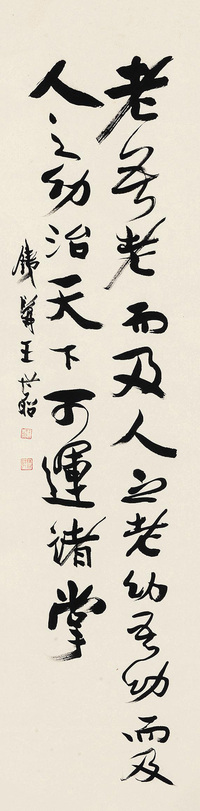 老吾老而及人之老幼吾幼而及
人之幼治天下可運諸掌
鐵髯王世昭